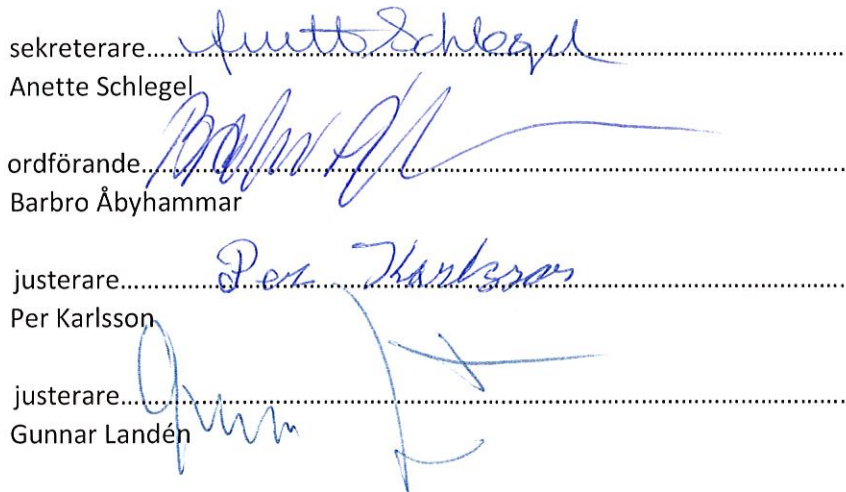 sekreterare......Anette Schlegel......
Anette Schlegel
ordförande......Barbro......
Barbro Åbyhammar
justerare......Per Karlsson......
Per Karlsson
justerare......Gunnar......
Gunnar Landén